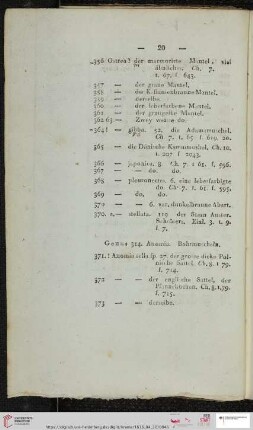 — 20 —
356 Ostrea? der marmorirte Mantel, viel
ähnliches. Ch. 7.
t. 67. f. 643.
357 — der graue Mantel.
358 — der Kaffeebraune Mantel.
359 — derselbe.
360 — der leberfarbene Mantel.
361 — der graugelbe Mantel.
362 63 — Zwey weisse do.
364 — gibba. 52. die Adamsmuschel.
Ch. 7. t. 65. f. 619. 20.
365 — die Dänische Kammuschel, Ch. 10.
t. 207 f. 2043.
366 — japonica. 3. Ch. 7 t. 61. f. 596.
367 — do. do.
368 — pleuronectes. 6. eine leberfarbigte
do. Ch. 7. t. 61. f. 595.
369 — do. do.
370 — 6. ser. dunkelbraune Abart.
370. a. — stellata. 119 der Stern
Schröters. Einl. 3. t. 9.
f. 7.
Genus 314. Anomia Bohrmuschel.
371. ! Anomia sella sp. 27. der grosse dicke Pol-
nische Sattel. Ch. 8. t 79.
f. 714.
372 — der englische Sattel, der
Ch. 8. t. 79.
f. 715.
373 — derselbe.